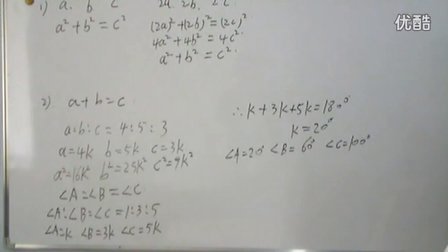 优酷
1) a. b c 2a. 2b. 2c.
a²+b²=c² (2a)²+(2b)²=(2c)²
4a²+4b²=4c²
a²+b²=c².
2) a+b=c
a:b:c=4:5:3
a=4k b=5k c=3k
a²=16k² b²=25k² c²=9k²
∠A=∠B=∠C
∠A:∠B=∠C=1:3:5
∠A=k ∠B=3k ∠C=5k
∴k+3k+5k=180°
k=20°
∠A=20° ∠B=60° ∠C=100°